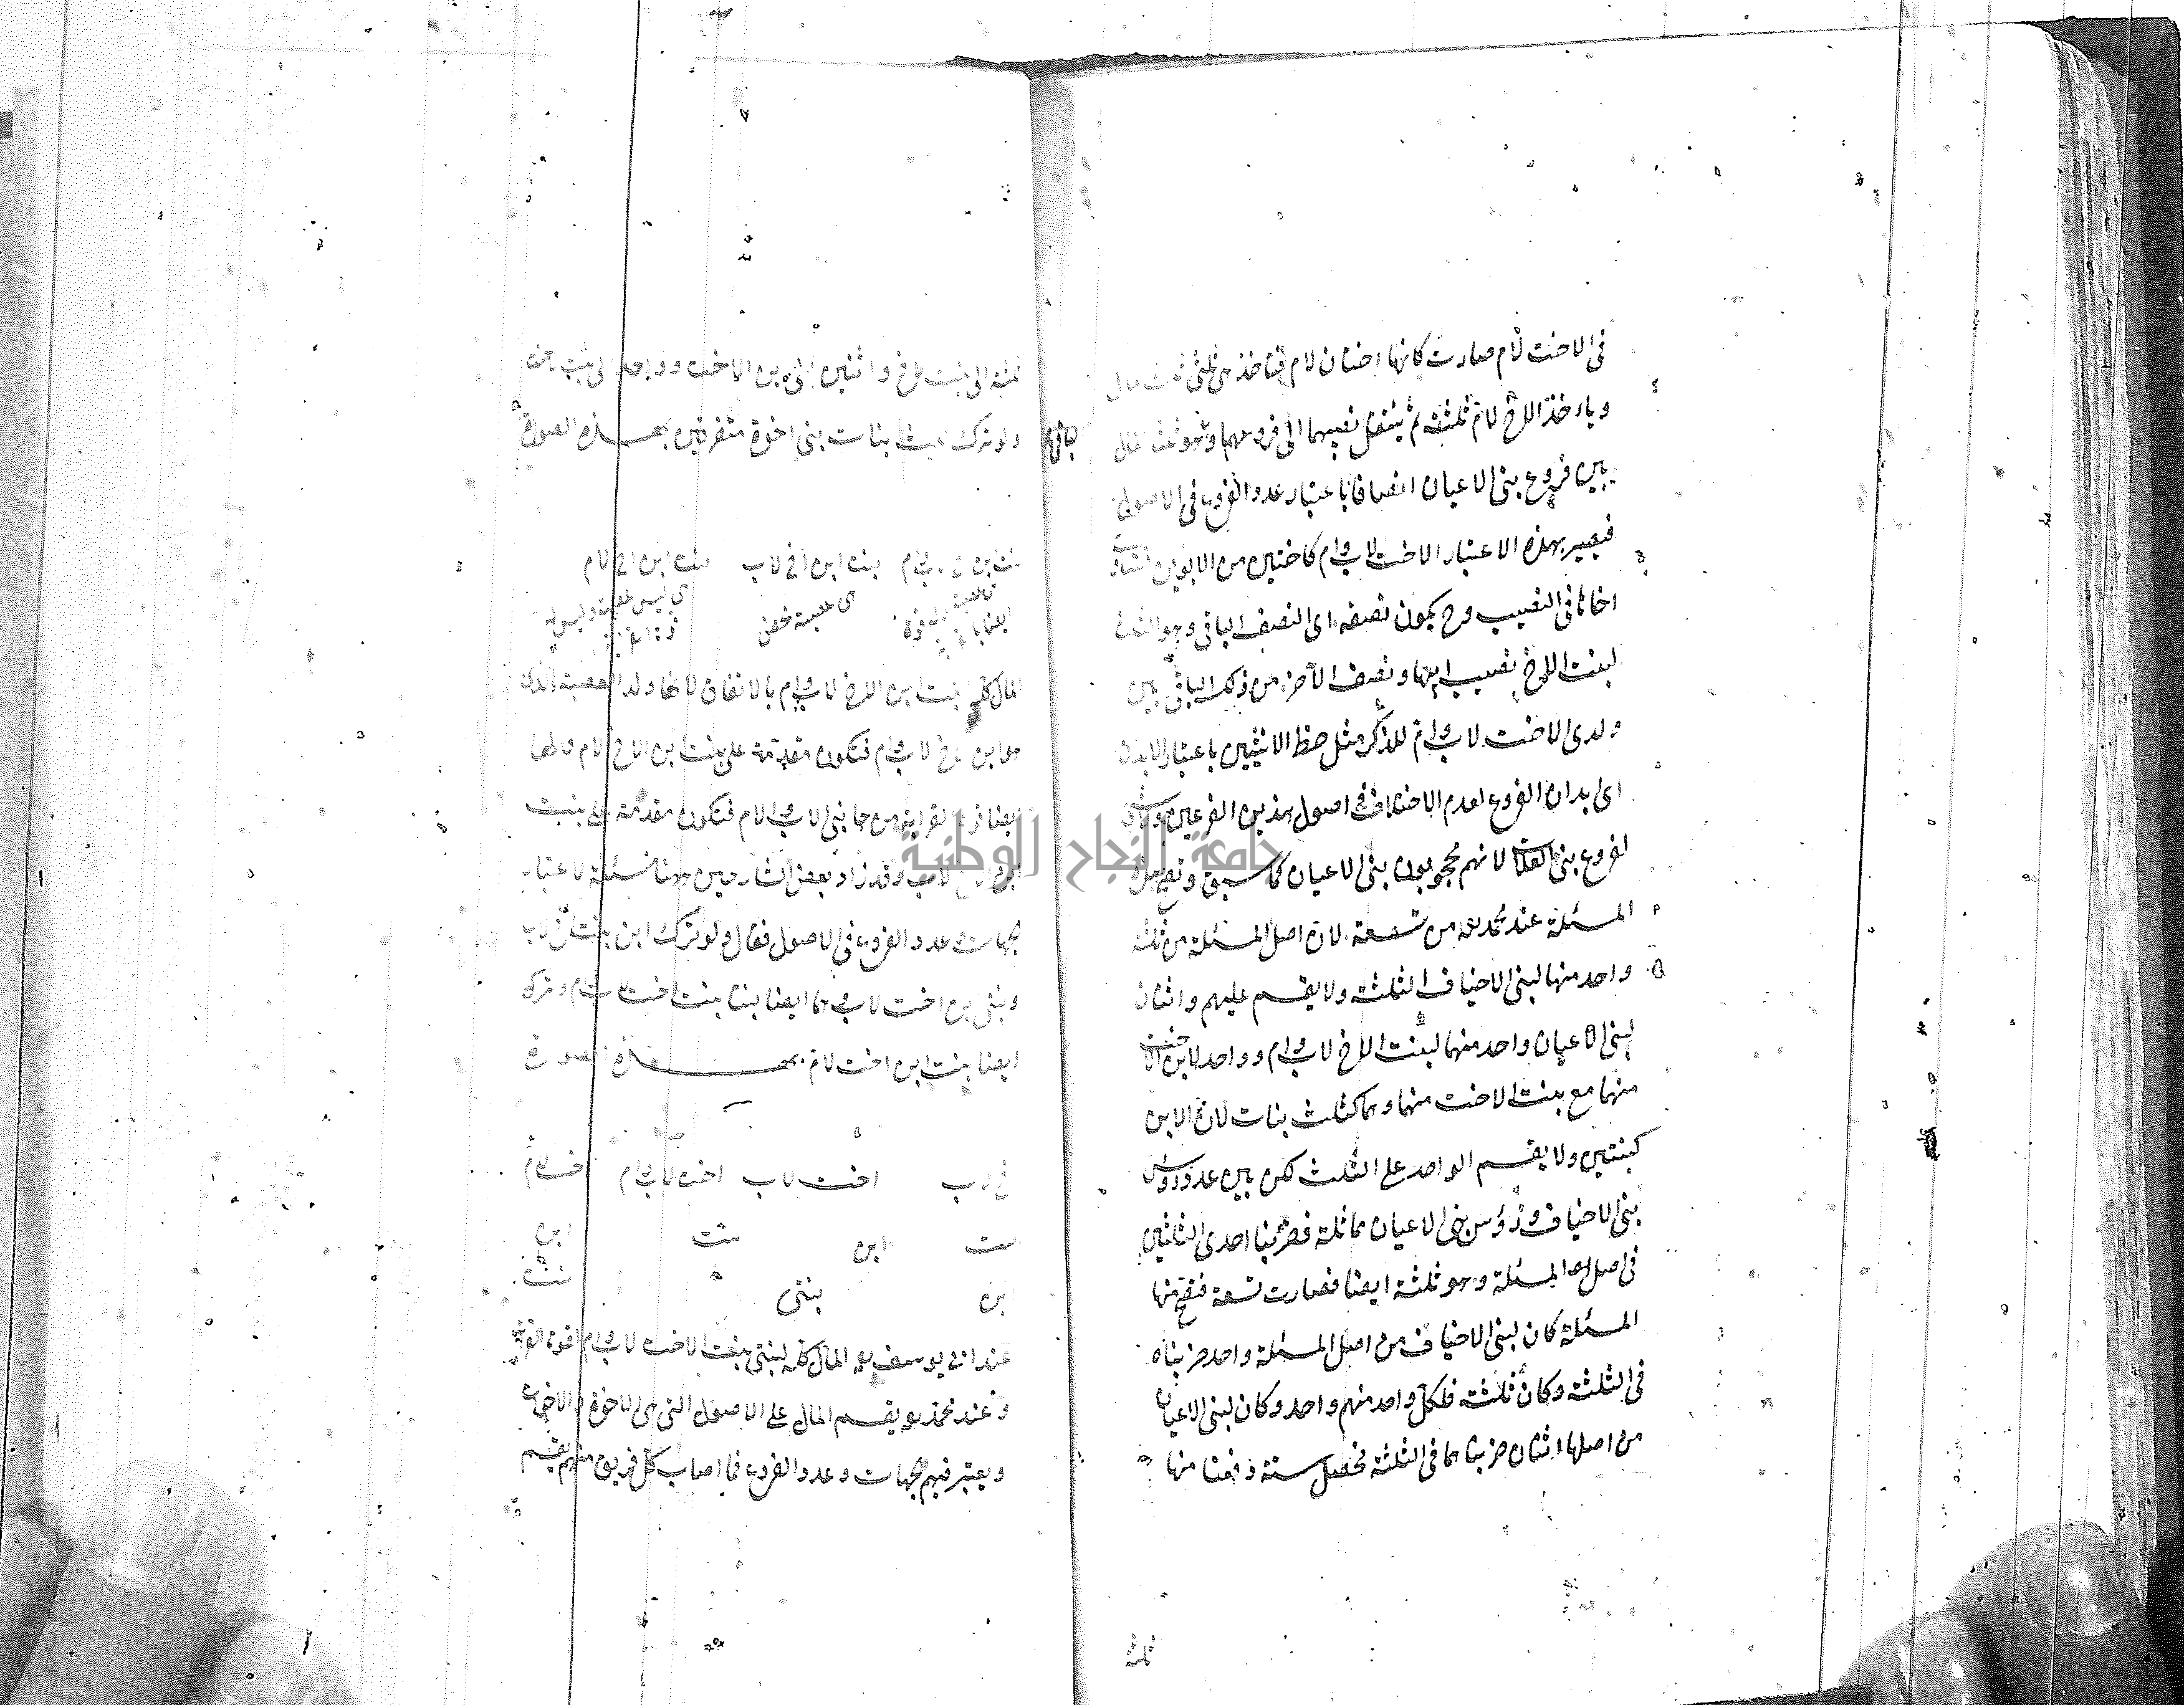 في الاخت لام صارت كانها اختان لام فتاخذ هي ثلثي ثلث المال
وياءخذ الاخ لام ثلثه ثم ينتقل نصيبهما الى فروعهما وثلثا المال
بين فروع بني الاعيان انصافا باعتبار عدد الفروع في الاصول
فيصير بهذه الاعتبار الاخت لاب وام كاختين من الابوين فتساوي
اخاها في النصيب وح يكون نصفه اى النصف الباقي وهو الثلث
لبنت الاخ نصيب ابيها ونصف الآخر من ذلك الباقي بين
ولدى الاخت لاب وام للذكر مثل حظ الانثيين باعتبار الابدان
اى ابدان الفروع لعدم الاختلاف في اصول هذين الفرعين
لفروع بني العلات لانهم محجوبون ببني الاعيان كما سبق وتصح هذه
المسئلة عند محمد من تسعة لان اصل المسئلة من ثلثة
واحد منها لبني الاخياف الثلثة ولا يقسم عليهم واثنان
لبني الاعيان واحد منهما لبنت الاخ لاب وام وواحد لابن الاخت
منهما مع بنت الاخت منهما وهما كثلث بنات لان الابن
كبنتين ولا يقسم الواحد على الثلث لكن بين عدد رؤس
بني الاخياف ورؤس بني الاعيان مماثلة فضربنا احدى الثلثين
في اصل المسئلة وهو ثلثة ايضا فصارت تسعة فتصح منها
المسئلة كان لبني الاخياف من اصل المسئلة واحد ضربناه
في الثلثة وكان ثلثة فلكل واحد منهم واحد وكان لبني الاعيان
من اصلها اثنان ضربناهما في الثلثة فحصل ستة دفعنا منها
ثلثة
ثلثة الى بنت الاخ واثنين الى ابن الاخت وواحد الى بنت
ولو ترك ثلث بنات بني اخوة متفرقين بهذه الصورة
بنت ابن اخ لاب وام بنت ابن اخ لاب بنت ابن اخ لام
هي عصبة هي عصبة محض هي ليس عصبة وليس له
ايضا قوة
المال كله لبنت ابن الاخ لاب وام بالاتفاق لانها ولد العصبة الذى
هو ابن الاخ لاب وام فتكون مقدمة على بنت ابن الاخ لام ولها
ايضا قوة القرابة من جانبي الاب والام فتكون مقدمة على بنت
ابن الاخ لاب وقد زاد بعض الشارحين ههنا مسئلة لاعتبار
الجهات وعدد الفروع في الاصول فقال ولو ترك ابن بنت اخ لاب
وبنتي ابن اخت لاب هما ايضا بنتا بنت اخت لاب وام وترك
ايضا بنت ابن اخت لام بهذه الصورة
اخ لاب اخت لاب اخت لاب وام اخت لام
بنت ابن بنت ابن
ابن بنتي بنت
عند ابي يوسف المال كله لبنتي بنت الاخت لاب وام لقوة القرابة
وعند محمد يقسم المال على الاصول التي هي الاخوة والاخوات
ويعتبر فيهم الجهات وعدد الفروع فما اصاب كل فريق منهم يقسم
جامعة النجاح الوطنية